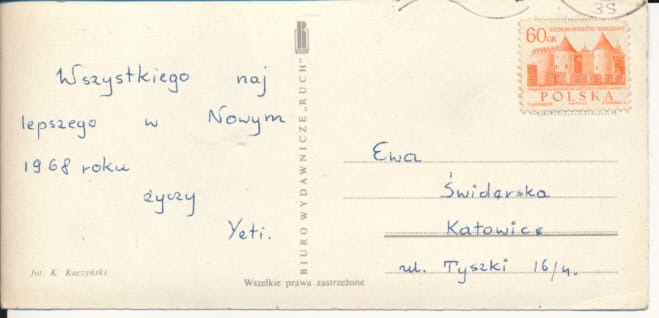 35
SIEDEM WIEKÓW WARSZAWY
60 GR
POLSKA
Wszystkiego naj
lepszego w Nowym
1968 roku
życzy
Yeti.
fot. K. Kaczyński
BIURO WYDAWNICZE „RUCH”
Wszelkie prawa zastrzeżone
Ewa
Świderska
Katowice
ul. Tyszki 16/4.